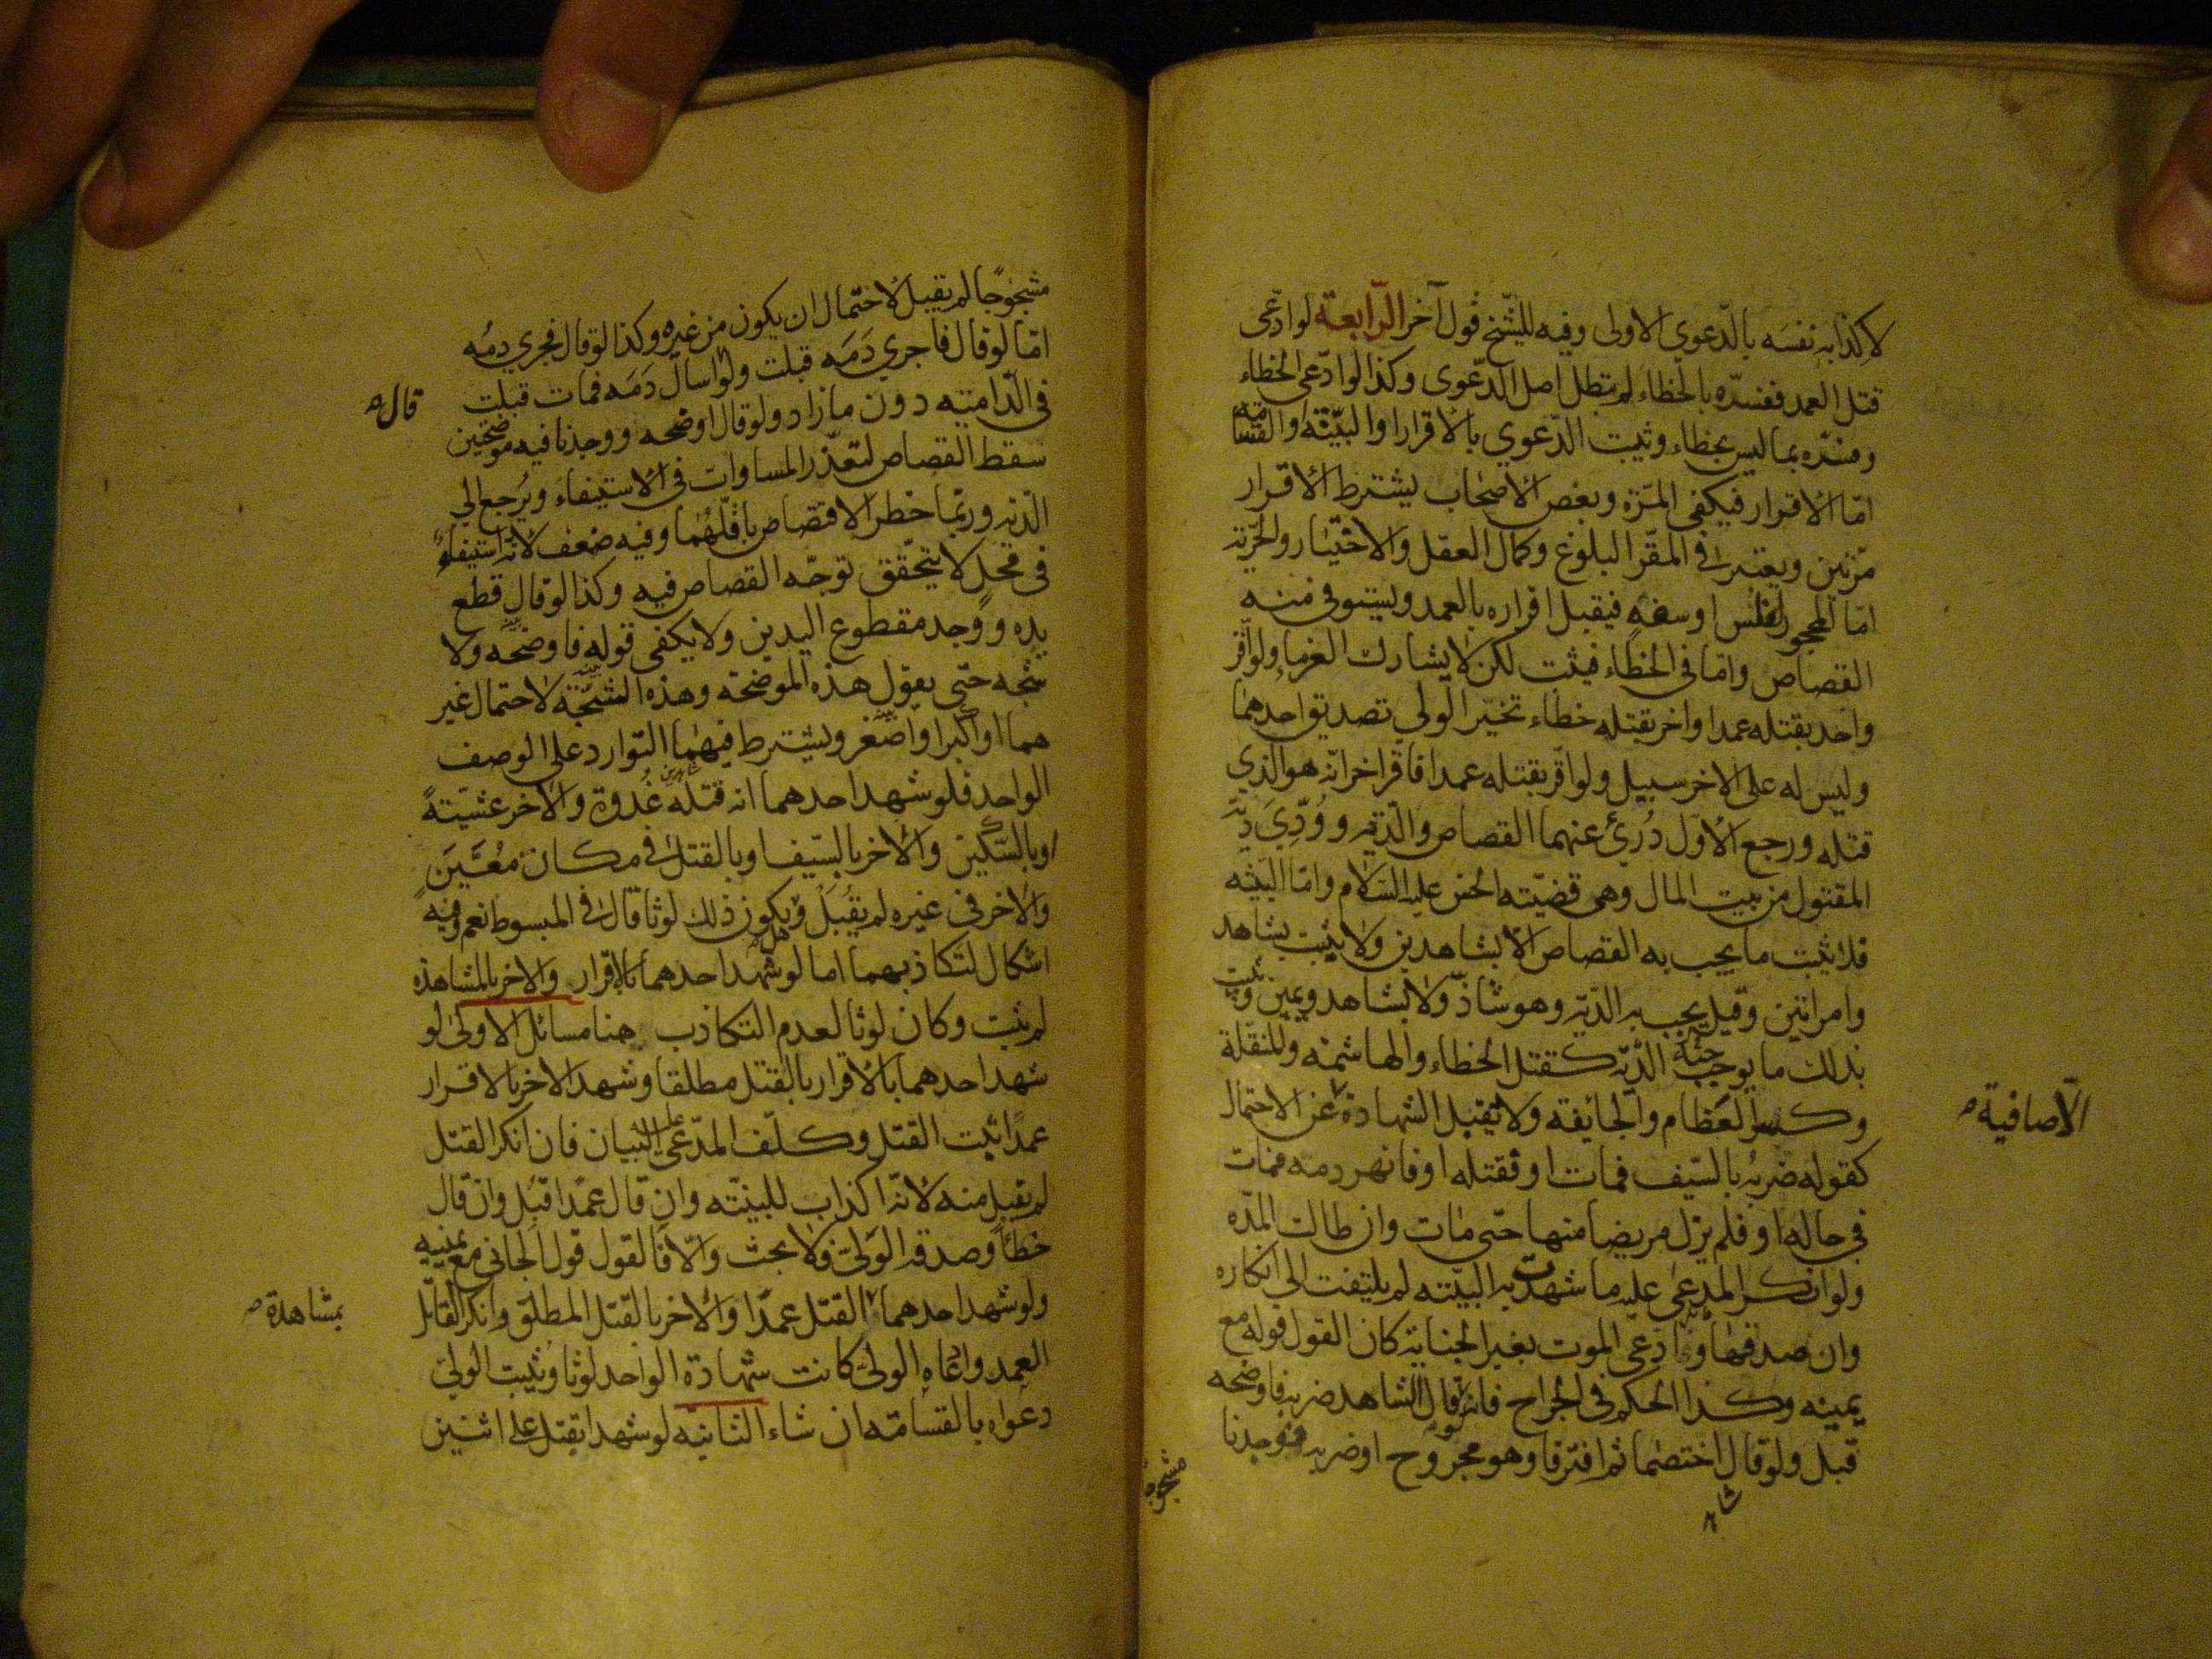 لاكذابه نفسه بالدعوي الاولى وفيه للشيخ قول آخر الرابعة لو ادعى
قتل العمد ففسره بالخطاء لم تبطل اصل الدعوى وكذا لو ادعى الخطاء
وفسره بما ليس بخطاء وثبت الدعوي بالاقرار او البينة والقسامة
اما الاقرار فيكفى المرة وبعض الاصحاب يشترط الاقرار
مرتين ويعتبر في المقر البلوغ وكمال العقل والاختيار والحرية
اما المحجور لفلس او سفه فيقبل اقراره بالعمد ويستوفى منه
القصاص واما فى الخطاء فيثبت لكن لا يشارك الغرماء ولو اقر
واحد بقتله عمدا واخر بقتله خطاء تخير الولي تصديق احدهما
وليس له على الاخر سبيل ولو اقر بقتله عمدا فاقر اخر انه هو الذي
قتله ورجع الاول دُرئ عنهما القصاص والدية وودي دية
المقتول من بيت المال وهى قضيته الحسن عليه السلام واما البينه
فلا يثبت ما يجب به القصاص الا بشاهدين ولا يثبت بشاهد
وامراتين وقيل يجب به الدية وهو شاذ ولا بشاهد ويمين ويثبت
بذلك ما يوجب الدية كقتل الخطاء والهاشمة والمنقلة
وكسر العظام والجائفه ولا يقبل الشهادة عن الاحتمال
الا صافية
كقوله ضربه بالسيف فمات او فقتله او فانهر دمه فمات
في حاله او فلم يزل مريضا منها حتى مات وان طالت المده
ولو انكر المدعى عليه ما شهدت به البينه لم يلتفت الى انكاره
وان صدقها وادعى الموت بغير الجناية كان القول قوله مع
يمينه وكذا الحكم فى الجراح فانه لو قال الشاهد ضربه فاوضحه
قبل ولو قال اختصما ثم افترقا وهو مجروح او ضربه فوجدنا
مشجوجا
مشجوجًا لم يقبل لاحتمال ان يكون من غيره وكذا لو قال فجري دمه
اما لو قال فاجري دَمَه قبلت ولو اسال دَمَه فمات قبلت
قال
فى الدامية دون ما زاد ولو قال اوضحه ووجدنا فيه موضحين
سقط القصاص لتعذر المساوات فى الاستيفاء ويرجع الي
الدية وربما خطر الاقتصاص باقلهما وفيه ضعف لانه استيفاء
فى محل لا يتحقق توجه القصاص فيه وكذا لو قال قطع
يده ووجد مقطوع اليدين ولا يكفى قوله فاوضحه ولا
شجه حتى يقول هذه الموضحة وهذه الشجة لاحتمال غير
هما او اكبر او اصغر ويشترط فيهما التوارد على الوصف
الواحد فلو شهد احدهما انه قتله غُدوة والاخر عشيتهً
او بالسكين والاخر بالسيف او بالقتل فى مكان مُعَيَّن
والاخر فى غيره لم يقبل ويكون ذلك لوثا قال فى المبسوط نعم وفيه
اشكال لتكاذبهما اما لو شهد احدهما بالاقرار والاخر بالمشاهده
لم يثبت وكان لوثا لعدم التكاذب هنا مسائل الاولى لو
شهد احدهما بالاقرار بالقتل مطلقا وشهد الاخر بالاقرار
عمدًا ثبت القتل وكلف المدعى عليه البيان فان انكر القتل
لم يقبل منه لانه اكذاب للبينه وان قال عمدا قبل وان قال
خطأ وصدقه الولى فلا بحث والا فالقول قول الجانى مع يمنيه
ولو شهد احدهما القتل عمدا والاخر بالقتل المطلق وانكر القاتل
بمشاهدة
العمد وادعاه الولى كانت شهادة الواحد لوثا ويثبت الولي
دعواه بالقسامة ان شاء الثانية لو شهدا بقتل على اثنين